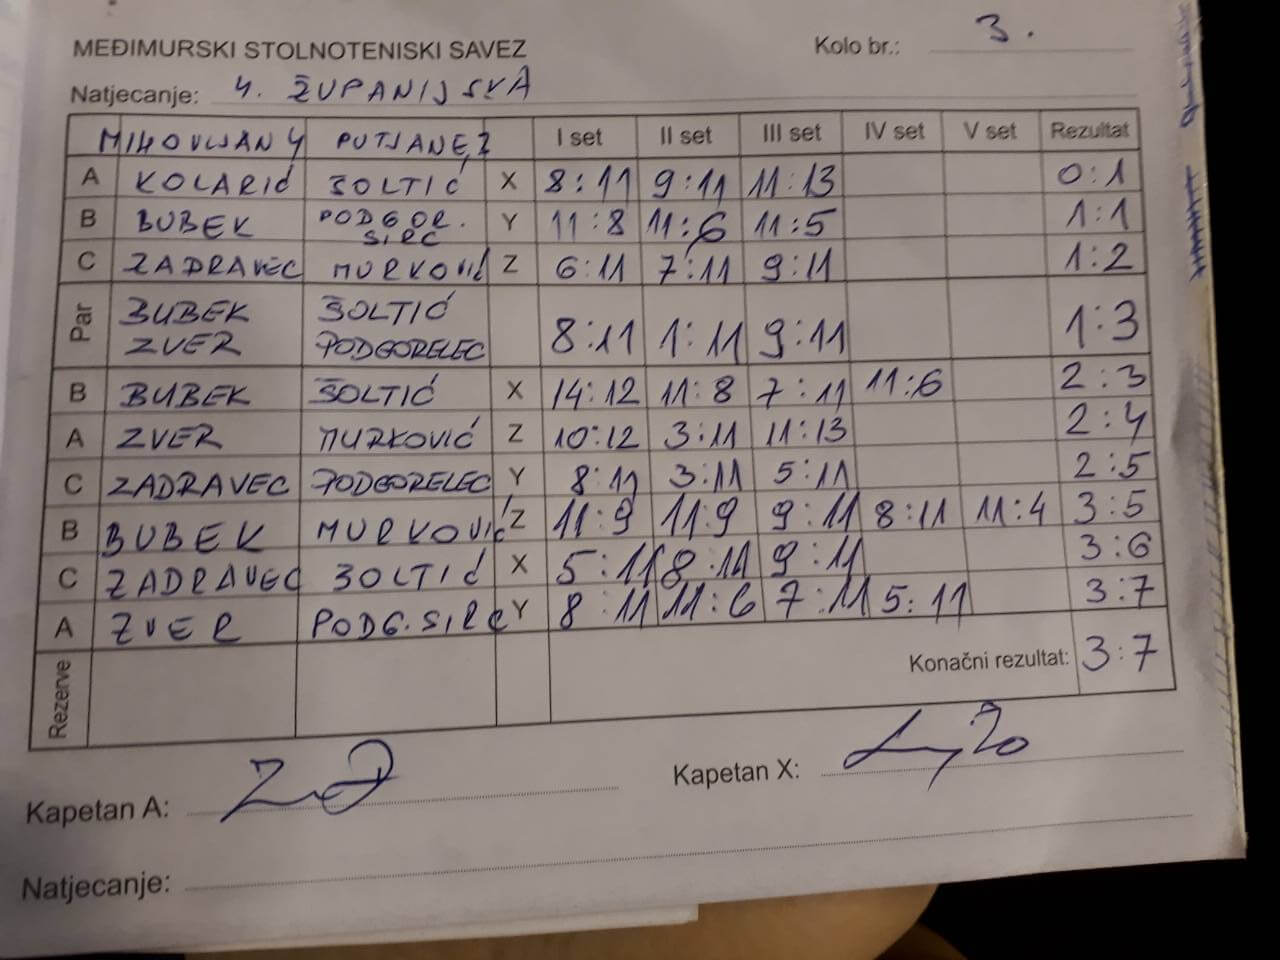 MEĐIMURSKI STOLNOTENISKI SAVEZ
Kolo br.: 3.
Natjecanje: 4. ŽUPANIJSKA
MIHOVLJAN 4 PUTJANE, 2 I set II set III set IV set V set Rezultat
A KOLARIĆ ŠOLTIĆ X 8:11 9:11 11:13 0:1
B BUBEK PODGOR. SIRC Y 11:8 11:6 11:5 1:1
C ZADRAVEC MURKOVIĆ Z 6:11 7:11 9:11 1:2
Par BUBEK ŠOLTIĆ
ZVER PODGORELEC 8:11 1:11 9:11 1:3
B BUBEK ŠOLTIĆ X 14:12 11:8 7:11 11:6 2:3
A ZVER MURKOVIĆ Z 10:12 3:11 11:13 2:4
C ZADRAVEC PODGORELEC Y 8:11 3:11 5:11 2:5
B BUBEK MURKOVIĆ Z 11:9 11:9 9:11 8:11 11:4 3:5
C ZADRAVEC ŠOLTIĆ X 5:11 8:11 9:11 3:6
A ZVER PODG. SIRC Y 8:11 11:6 7:11 5:11 3:7
Rezerve Konačni rezultat: 3:7
Kapetan A: Kapetan X:
Natjecanje: